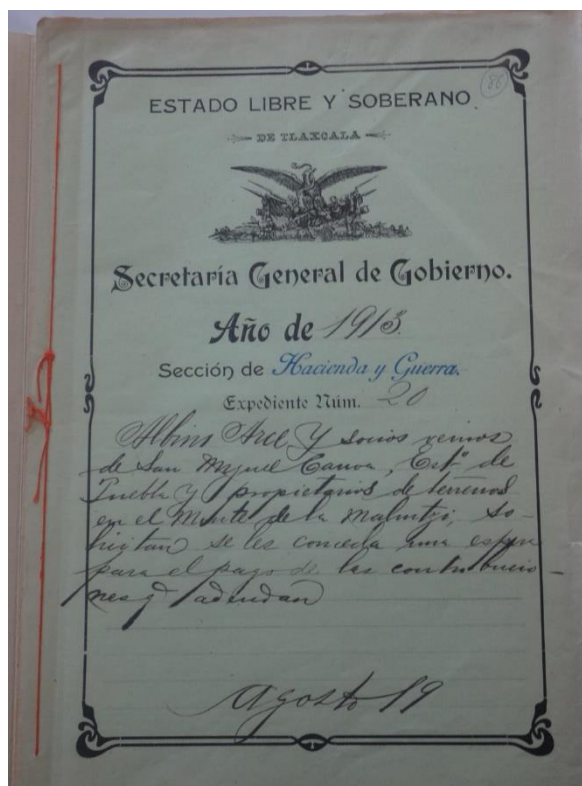 86
ESTADO LIBRE Y SOBERANO
DE TLAXCALA
Secretaría General de Gobierno.
Año de 1913.
Sección de Hacienda y Guerra.
Expediente Núm. 20
Albino Arce y socios vecinos
de San Miguel Canoa, Est.º de
Puebla y propietarios de terrenos
en el Monte de la Malintzi, so-
licitan se les conceda una espera
para el pago de las contribucio-
nes q adeudan
Agosto 19